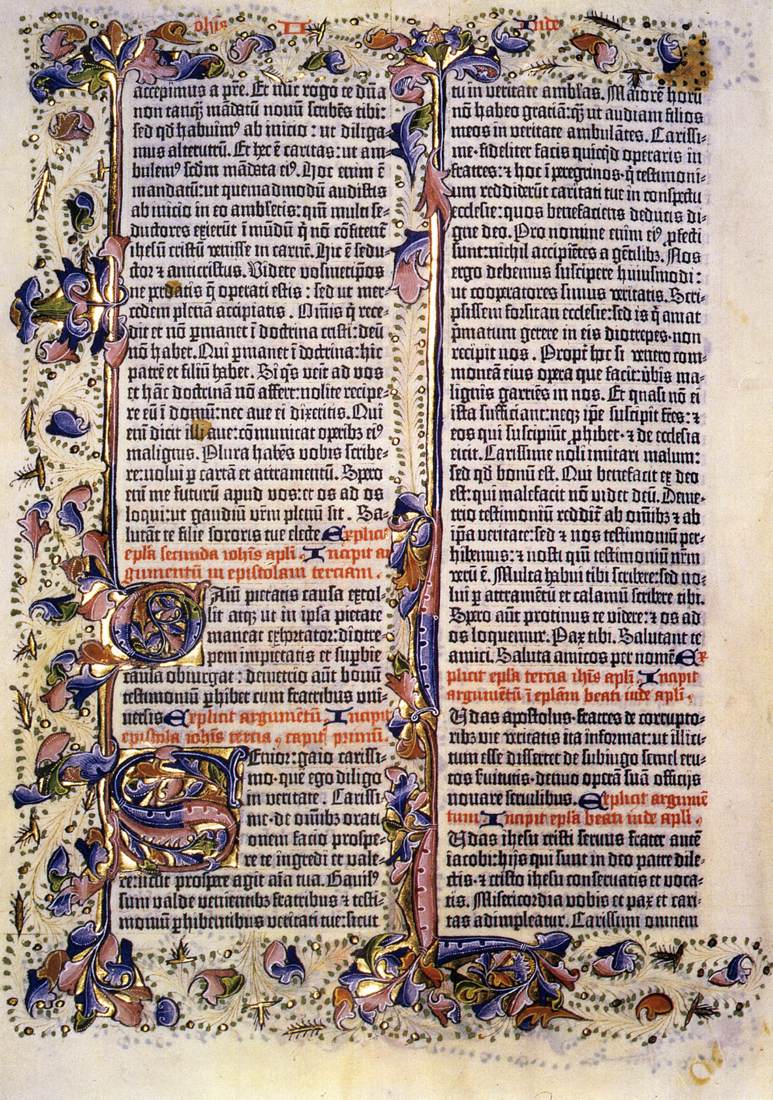 Johis II Iude
accepimus a pr̄e. Et nūc rogo te dn̄a
non tanq̄ mādatū novū scribēs tibi:
sed qd̄ habuimꝰ ab inicio : ut diliga⸗
mus alterutrū. Et hec ē caritas: ut am⸗
bulemꝰ scd̄m mādata eiꝰ. Hoc enim ē
mandatū: ut quemadmodū audistis
ab inicio in eo ambletis: qm̄ multi se⸗
ductores exierūt ī mūdū q̄ nō cōfitent̄
ihesū cristū venisse in carnē. Hic ē sedu⸗
ctor ⁊ anticristus. Videte vosmetip̄os
ne perdatis q̄ operati estis : sed ut mer⸗
cedem plenā accipiatis . Om̄is q̄ rece⸗
dit et nō p̄manet ī doctrina cristi: deū
nō habet. Qui p̄manet ī doctrina: hic
patrē et filiū habet. Si q̄s venit ad vos
et hāc doctrinā nō affert: nolite recipe⸗
re eū ī domū: nec ave ei dixeritis. Qui
eni͞ dicit illi ave: cōmunicat operibꝫ eiꝰ
malignis. Plura habēs vobis scribe⸗
re: nolui p cartā et atramentū. Spero
eni͞ me futurū apud vos: et os ad os
loqui: ut gaudiū vr̄m plenū sit . Sa⸗
lutāt te filii sororis tue electe Explicit
ep̄la secunda ioh̄is ap̄li . Incipit ar
gumentū in epistolam terciam .
Caiū pietatis causa extol⸗
lit atqꝫ ut in ipsa pietate
maneat exhortatur: diotre⸗
pem impietatis et supbie
causa obiurgat : demetrio aūt bonū
testimoniū p̄hibet cum fratribus uni⸗
versis Explicit argumētū. Incipit
epistola ioh̄is tercia , capit̄ primū.
Senior: gaio carissi⸗
mo. que ego diligo
in veritate . Carissi⸗
me . de om̄ibꝫ orati⸗
onem facio prospe⸗
re te ingredi et vale⸗
re: sicut prospere agit aīa tua. Gavisꝰ
sum valde venientibꝰ fratribus ⁊ testi⸗
moniū p̄hibentibus veritati tue: sicut
tu in veritate amblas. Maiorē horū
nō habeo gratiā: q̄ ut audiam filios
meos in veritate ambulātes. Carissi⸗
me . fideliter facis quicq̄d operaris in
fratres: ⁊ hoc ī peregrinos. q̄ testimoni⸗
um reddiderūt caritati tue in conspectu
ecclesie: quos benefaciens deducis di⸗
gne deo. Pro nomine enim eiꝰ p̄fecti
sunt: nichil accipiētes a gētilibꝫ. Nos
ergo debemus suscipere huiusmodi :
ut cooperatores simus veritatis. Scri⸗
psissem forsitan ecclesie: sed is q̄ amat
p̄matum gerere in eis diotrepes . non
recipit nos . Propt̄ hoc si venero com⸗
moneā eius opera que facit: v̄bis ma⸗
lignis garriēs in nos. Et quasi nō ei
ista sufficiant: neqꝫ ip̄e suscipit fr̄es: ⁊
eos qui suscipiūt p̄hibet . ⁊ de ecclesia
eicit. Carissime noli imitari malum:
sed qd̄ bonū est . Qui benefacit ex deo
est: qui malefacit nō videt deū. Deme⸗
trio testimoniū reddit̄ ab om̄ibꝫ ⁊ ab
ip̄a veritate: sed ⁊ nos testimoniū per⸗
hibemus: ⁊ nosti qm̄ testimoniū nr̄m
verū ē . Multa habui tibi scribere: sed no⸗
lui p atramentū et calamū scribere tibi.
Spero aūt protinus te videre: ⁊ os ad
os loquemur. Pax tibi. Salutant te
amici. Saluta amicos per nomen Ex⸗
plicit ep̄la tercia ih̄is ap̄li . Incipit
argumētū ī ep̄lam beati iude ap̄li .
Judas apostolus . fratres de corrupto⸗
ribꝫ vie veritatis ita informat: ut illici⸗
tum esse disseret de subiugo semel eru⸗
tos ſvitutis . denuo operā suā officijs
novare servilibus. Explicit argumē
tum Incipit ep̄la beati iude ap̄li .
Judas ihesu cristi servus frater autē
iacobi: hijs qui sunt in deo patre dile⸗
ctis . ⁊ cristo ihesu conservatis et voca⸗
tis. Misericordia vobis et pax et cari⸗
tas adimpleatur. Carissimi omnem